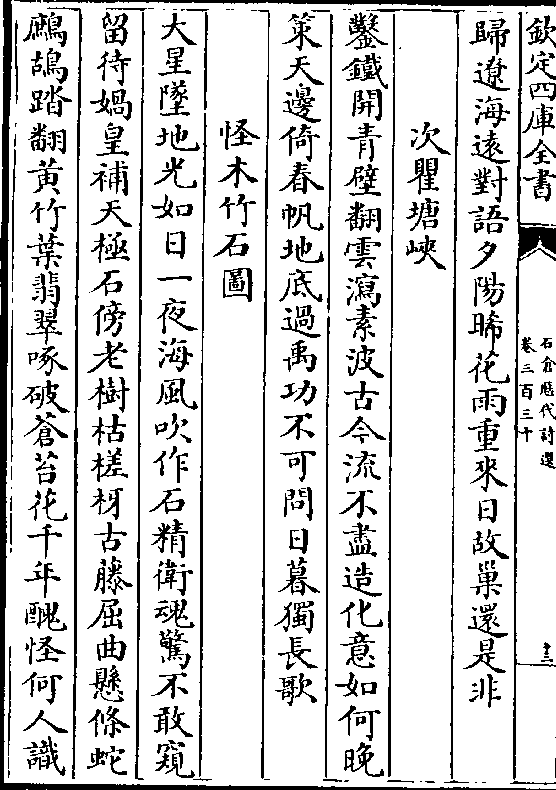 欽定四庫全書
石倉歷代詩選
卷三百三十
歸遼海遠對語夕陽晞花雨重來日故巢還是非
次瞿塘峽
鑿鐵開青壁翻雲瀉素波古今流不盡造化意如何晚
策天邊倚春帆地底過禹功不可問日暮獨長歌
怪木竹石圖
大星墜地光如日一夜海風吹作石精衛魂驚不敢窺
留待媧皇補天極石傍老樹枯槎枒古藤屈曲懸條蛇
鷓鴣踏翻黃竹葉翡翠啄破蒼苔花千年醜怪何人識